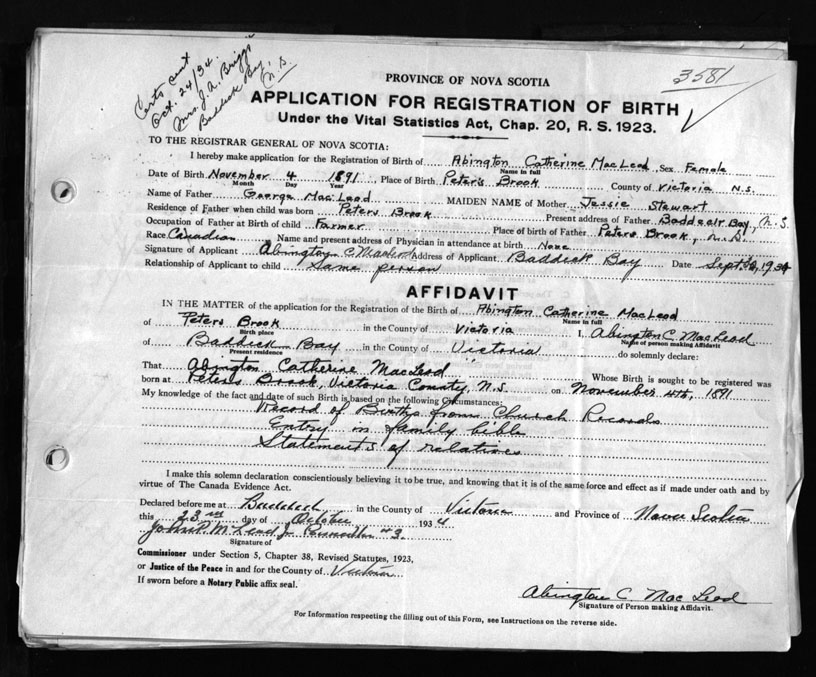 Certs sent
Oct. 24/34.
Mrs. J. A. Briggs
Baddeck Bay
N.S.
3581
PROVINCE OF NOVA SCOTIA
APPLICATION FOR REGISTRATION OF BIRTH
Under the Vital Statistics Act, Chap. 20, R. S. 1923.
TO THE REGISTRAR GENERAL OF NOVA SCOTIA:
I hereby make application for the Registration of Birth of Abington Catherine MacLeod Sex Female
Name in full
Date of Birth November 4 1891 Place of Birth Peter's Brook County of Victoria N.S.
Month Day Year
Name of Father George MacLeod MAIDEN NAME of Mother Jessie Stewart
Residence of Father when child was born Peters Brook Present address of Father Baddeck Bay, N.S.
Occupation of Father at Birth of child Farmer Place of birth of Father Peters Brook, N.S.
Race Canadian Name and present address of Physician in attendance at birth None
Signature of Applicant Abington C. MacLeod Address of Applicant Baddeck Bay Date Sept. 1934
Relationship of Applicant to child Same person
AFFIDAVIT
IN THE MATTER of the application for the Registration of the Birth of Abington Catherine MacLeod
Name in full
of Peters Brook in the County of Victoria I, Abington C. MacLeod
Birth place Name of person making Affidavit
of Baddeck Bay in the County of Victoria do solemnly declare:
Present residence
That Abington Catherine MacLeod Whose Birth is sought to be registered was
born at Peters Brook, Victoria County, N.S. on November 4th, 1891
My knowledge of the fact and date of such Birth is based on the following Circumstances:
Record of Births from Church Records
Entry in family bible
Statements of relatives
I make this solemn declaration conscientiously believing it to be true, and knowing that it is of the same force and effect as if made under oath and by
virtue of The Canada Evidence Act.
Declared before me at Baddeck in the County of Victoria and Province of Nova Scotia
this 23rd day of October 1934
John P. McLeod
Signature of
Commissioner under Section 5, Chapter 38, Revised Statutes, 1923,
or Justice of the Peace in and for the County of Victoria
If sworn before a Notary Public affix seal.
Abington C. MacLeod
Signature of Person making Affidavit.
For Information respecting the filling out of this Form, see Instructions on the reverse side.